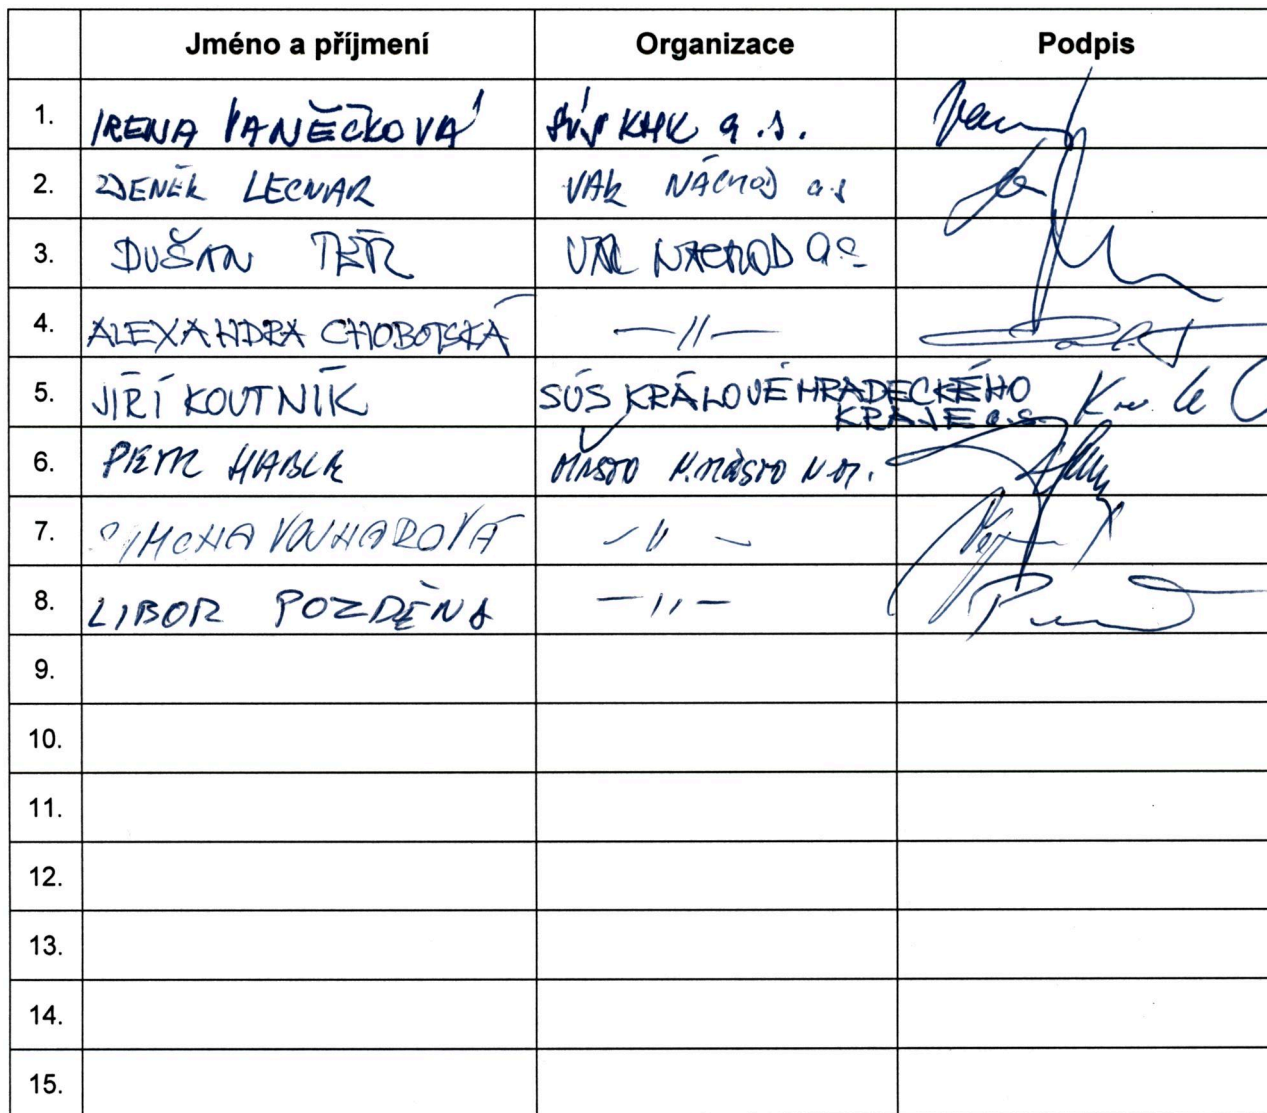 Jméno a příjmení Organizace Podpis
1. IRENA VANĚČKOVÁ SÚS KHK a.s.
2. ZDENĚK LECNAR VAK NÁCHOD a.s
3. DUŠAN TÉR VAK NÁCHOD a.s
4. ALEXANDRA CHOBOTSKÁ —//—
5. JIŘÍ KOUTNÍK SÚS KRÁLOVÉHRADECKÉHO
KRAJE a.s.
6. PETR HABLE MĚSTO N.MĚSTO N.M.
7. SIMONA VOJHAROVÁ —//—
8. LIBOR POZDĚNA —//—
9.
10.
11.
12.
13.
14.
15.